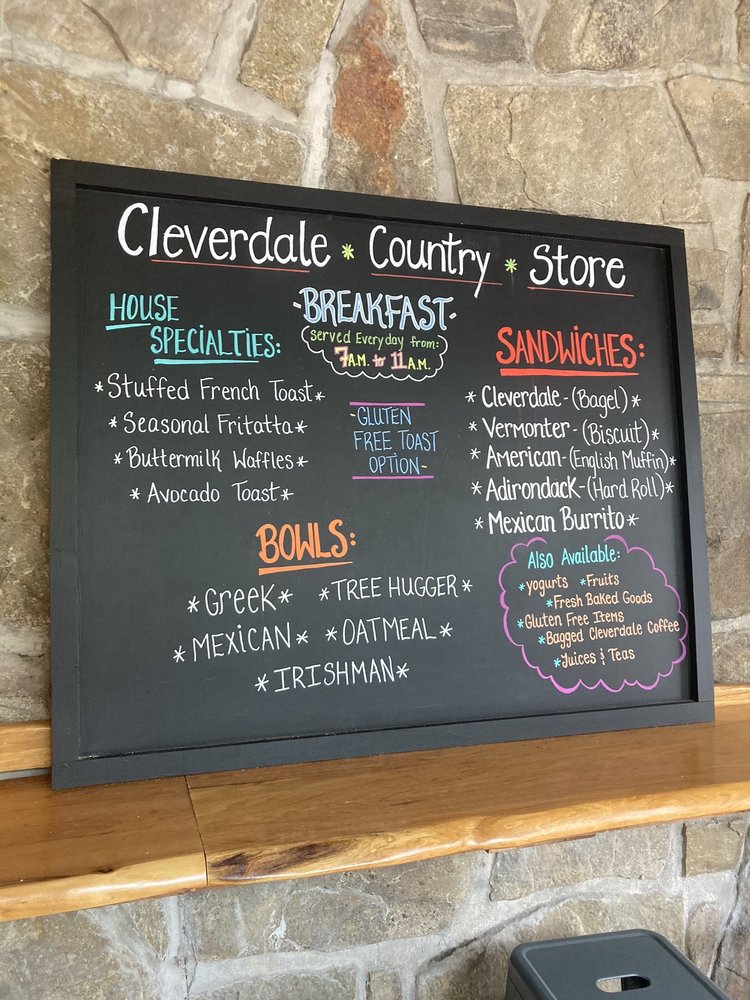 Cleverdale * Country * Store
HOUSE
SPECIALTIES:
*Stuffed French Toast*
*Seasonal Fritatta*
*Buttermilk Waffles*
*Avocado Toast*
-BREAKFAST-
Served Everyday from:
7A.M. to 11A.M.
-GLUTEN
FREE TOAST
OPTION-
SANDWICHES:
*Cleverdale-(Bagel)*
*Vermonter-(Biscuit)*
*American-(English Muffin)*
*Adirondack-(Hard Roll)*
*Mexican Burrito*
BOWLS:
*Greek* *TREE HUGGER*
*MEXICAN* *OATMEAL*
*IRISHMAN*
Also Available:
*yogurts *Fruits
*Fresh Baked Goods
*Gluten Free Items
*Bagged Cleverdale Coffee
*Juices & Teas